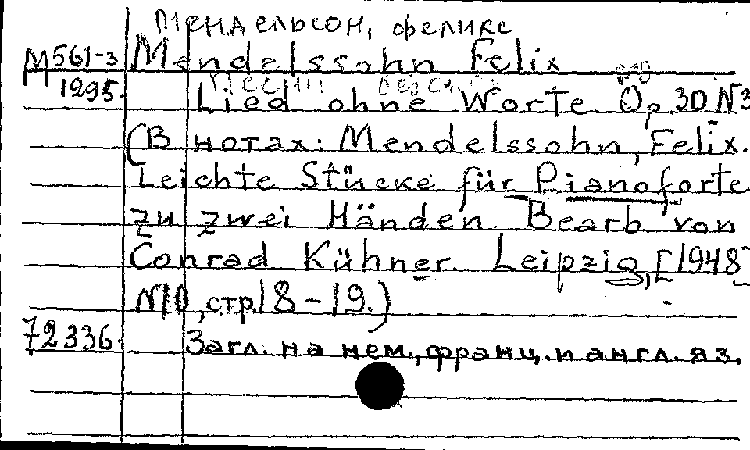 Мендельсон, Феликс
М561-3 Mendelssohn Felix
1295. Lied ohne Worte. Op. 30 N3
(В нотах: Mendelssohn, Felix.
Leichte Stücke für Pianoforte
zu zwei Händen. Bearb von
Conrad Kühner. Leipzig, [1948
N10, стр. 18-19.)
72336. Загл. на нем., франц. и англ. яз.